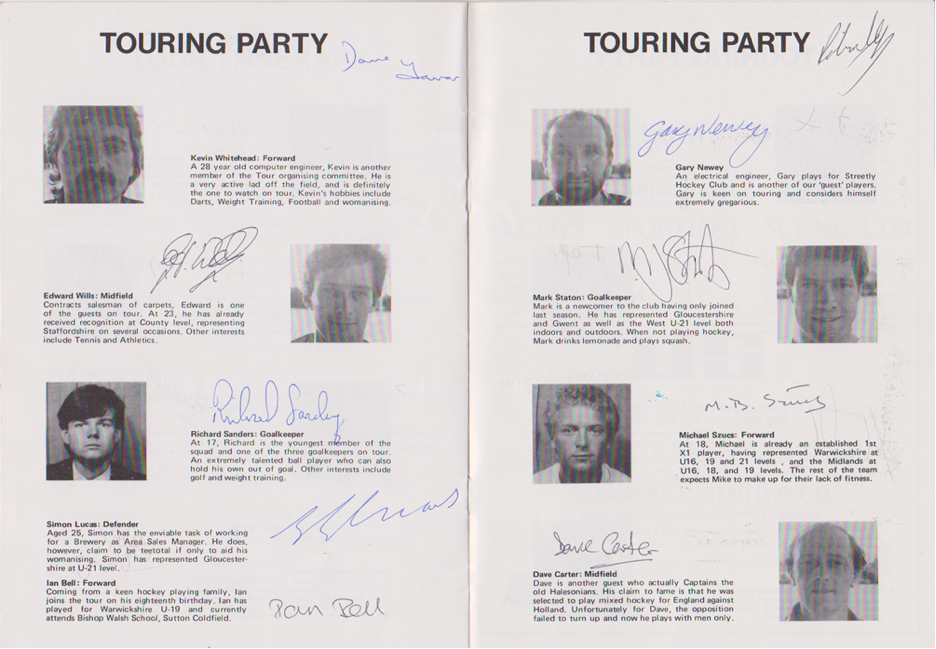 TOURING PARTY
Dave
Kevin Whitehead: Forward
A 28 year old computer engineer, Kevin is another
member of the Tour organising committee. He is
a very active lad off the field, and is definitely
the one to watch on tour. Kevin's hobbies include
Darts, Weight Training, Football and womanising.
Edward Wills: Midfield
Contracts salesman of carpets, Edward is one
of the guests on tour. At 23, he has already
received recognition at County level, representing
Staffordshire on several occasions. Other interests
include Tennis and Athletics.
Richard
Richard Sanders: Goalkeeper
At 17, Richard is the youngest member of the
squad and one of the three goalkeepers on tour.
An extremely talented ball player who can also
hold his own out of goal. Other interests include
golf and weight training.
Simon Lucas: Defender
Aged 25, Simon has the enviable task of working
for a Brewery as Area Sales Manager. He does,
however, claim to be teetotal if only to aid his
womanising. Simon has represented Gloucester-
shire at U-21 level.
Ian Bell: Forward
Coming from a keen hockey playing family, Ian
joins the tour on his eighteenth birthday. Ian has
played for Warwickshire U-19 and currently
attends Bishop Walsh School, Sutton Coldfield.
Bell
TOURING PARTY
Gary Newey
Gary Newey
An electrical engineer, Gary plays for Streetly
Hockey Club and is another of our 'guest' players.
Gary is keen on touring and considers himself
extremely gregarious.
Mark Staton: Goalkeeper
Mark is a newcomer to the club having only joined
last season. He has represented Gloucestershire
and Gwent as well as the West U-21 level both
indoors and outdoors. When not playing hockey,
Mark drinks lemonade and plays squash.
M.B. Szucs
Michael Szucs: Forward
At 18, Michael is already an established 1st
X1 player, having represented Warwickshire at
U16, 19 and 21 levels , and the Midlands at
U16, 18, and 19 levels. The rest of the team
expects Mike to make up for their lack of fitness.
Dave Carter
Dave Carter: Midfield
Dave is another guest who actually Captains the
old Halesonians. His claim to fame is that he was
selected to play mixed hockey for England against
Holland. Unfortunately for Dave, the opposition
failed to turn up and now he plays with men only.